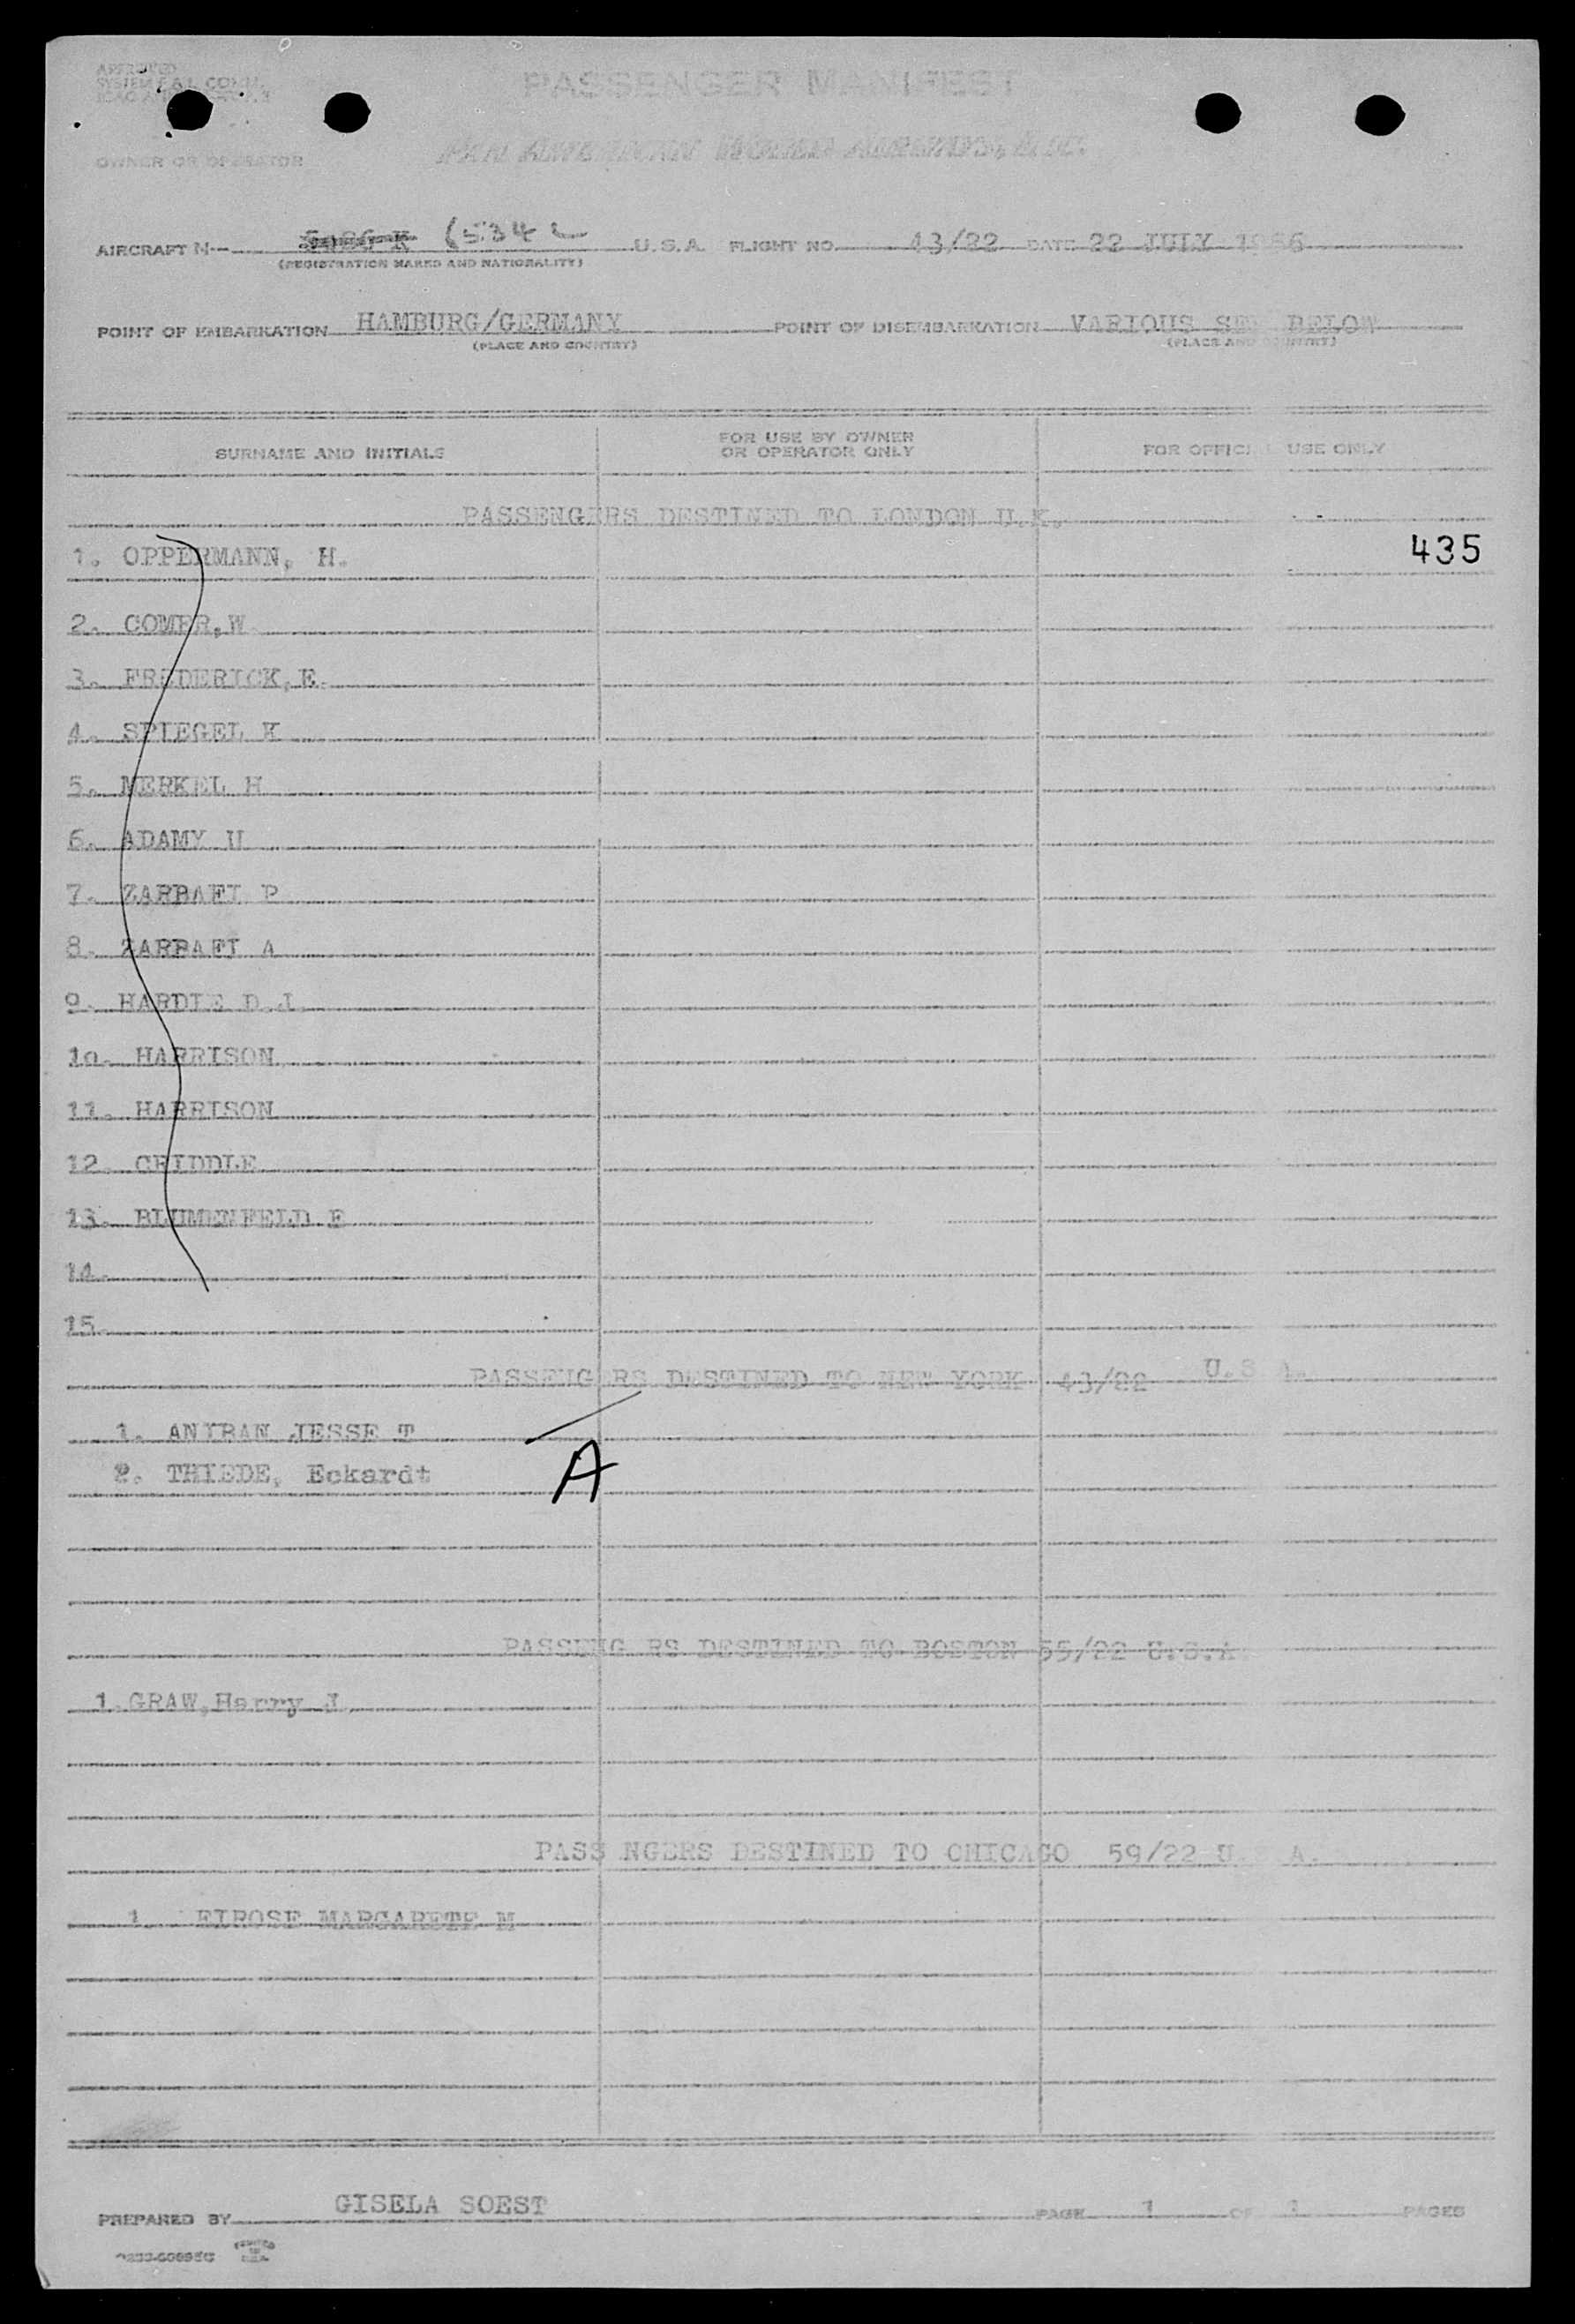 APPROVED
SYSTEM F.A.L. COMM.
PASSENGER MANIFEST
OWNER OR OPERATOR
PAN AMERICAN WORLD AIRWAYS, INC.
AIRCRAFT N-- 6534 U.S.A. FLIGHT NO. 43/22 DATE 22 JULY 1956
(REGISTRATION MARKS AND NATIONALITY)
POINT OF EMBARKATION HAMBURG/GERMANY POINT OF DISEMBARKATION VARIOUS SEE BELOW
(PLACE AND COUNTRY) (PLACE AND COUNTRY)
SURNAME AND INITIALS
FOR USE BY OWNER
OR OPERATOR ONLY
FOR OFFICIAL USE ONLY
PASSENGERS DESTINED TO LONDON U.K.
1. OPPERMANN, H.
435
2. GOMER,W
3. FREDERICK,E.
4. SPIEGEL K
5. MERKEL H
6. ADAMY U
7. ZARBAFI P
8. ZARBAFI A
9. HARDIE D.J.
10. HARRISON
11. HARRISON
12. CRIDDLE
13. BLUMENFELD E
14.
15.
PASSENGERS DESTINED TO NEW YORK 43/22 U.S.A.
1. ANYBAN JESSE T
2. THIEDE, Eckardt
A
PASSENG RS DESTINED TO BOSTON 55/22 U.S.A.
1.GRAW,Harry J.
PASS NGERS DESTINED TO CHICAGO 59/22 U.S.A.
1. EIROSE MARGARETE M
PREPARED BY GISELA SOEST PAGE 1 OF 1 PAGES
PRINTED
IN
U.S.A.